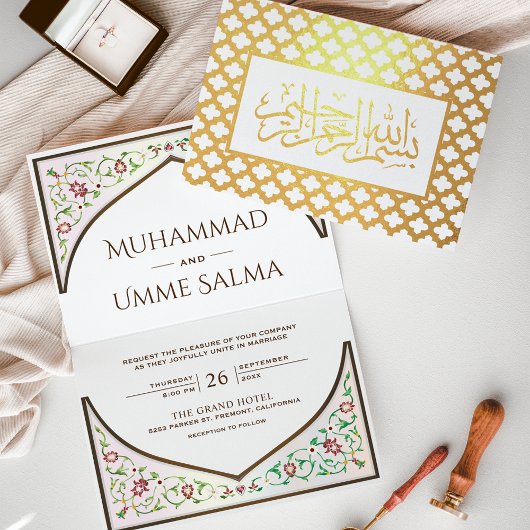 بسم الله الرحمن الرحيم
MUHAMMAD
AND
UMME SALMA
REQUEST THE PLEASURE OF YOUR COMPANY
AS THEY JOYFULLY UNITE IN MARRIAGE
THURSDAY 26 SEPTEMBER
6:00 PM 20XX
THE GRAND HOTEL
5263 PARKER ST. FREMONT, CALIFORNIA
RECEPTION TO FOLLOW